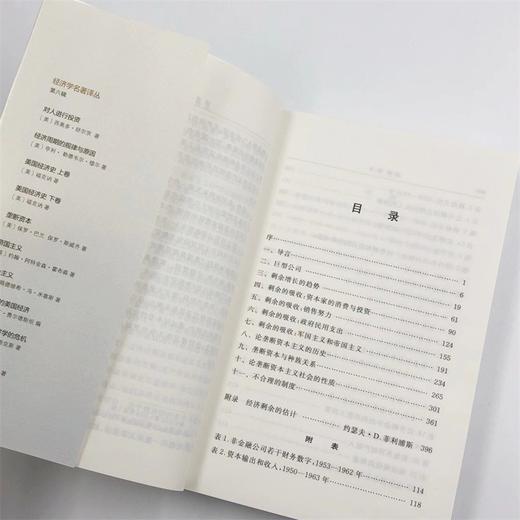 经济学名著译丛
第六辑
对人进行投资
〔美〕西奥多·舒尔茨 著
经济周期的规律与原因
〔美〕亨利·勒德韦尔·穆尔 著
美国经济史 上卷
〔美〕福克讷 著
美国经济史 下卷
〔美〕福克讷 著
垄断资本
〔美〕保罗·巴兰 保罗·斯威齐 著
帝国主义
〔英〕约翰·阿特金森·霍布森 著
主义
·米塞斯 著
的美国经济
·费尔德斯坦 编
学的危机
著
目 录
序
一、导言 1
二、巨型公司 6
三、剩余增长的趋势 19
四、剩余的吸收:资本家的消费与投资 61
五、剩余的吸收:销售努力 90
六、剩余的吸收:政府民用支出 124
七、剩余的吸收:军国主义和帝国主义 155
八、论垄断资本主义的历史 191
九、垄断资本与种族关系 234
十、论垄断资本主义社会的性质 265
十一、不合理的制度 301
361
附录 经济剩余的估计 约瑟夫·D.菲利浦斯 396
附 表
表1.非金融公司若干财务数字,1953—1962年 114
表2.资本输出和收入,1950—1963年 118